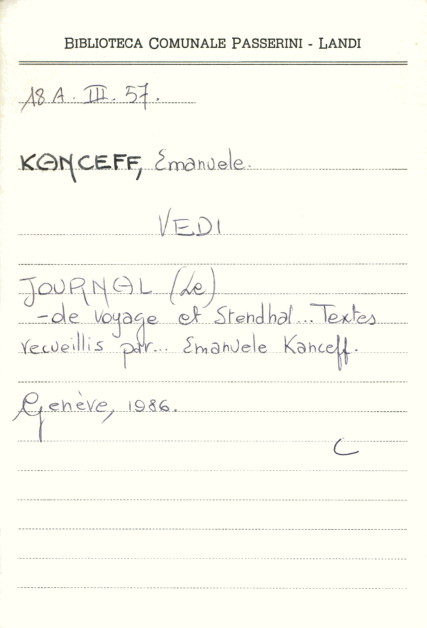 BIBLIOTECA COMUNALE PASSERINI - LANDI
18 A. III. 57.
KANCEFF, Emanuele.
VEDI
JOURNAL (Le)
-de voyage et Stendhal... Textes
recueillis par... Emanuele Kanceff.
Genève, 1986.
C